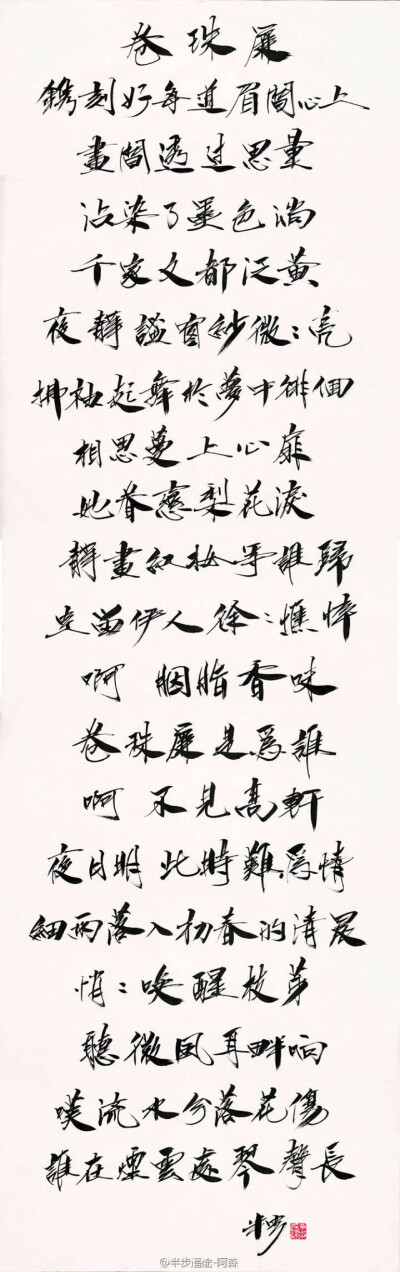 卷珠簾
鐫刻好每道眉間心上
畫間透过思量
沾染了墨色淌
千家文都泛黃
夜靜謐窗紗微:亮
拂袖起舞於夢中徘徊
相思蔓上心扉
她眷戀梨花淚
靜畫紅妝等誰歸
空留伊人徐:憔悴
啊 胭脂香味
卷珠簾是爲誰
啊 不見高軒
夜月明 此時難爲情
細雨落入初春的清晨
悄:喚醒枝芽
聽微風耳畔响
嘆流水兮落花傷
誰在煙雲處琴聲長
半步
@半步逼途-阿森